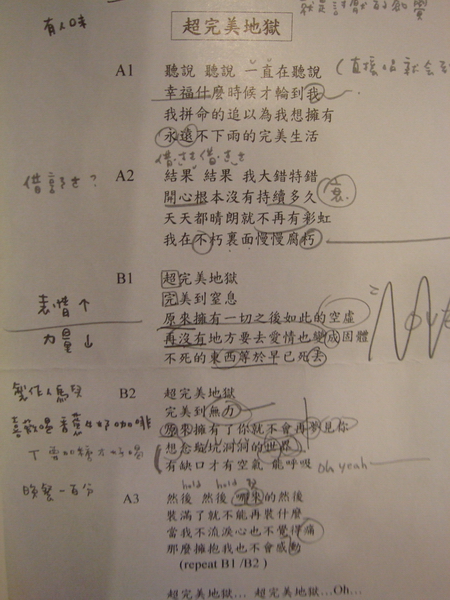 有人味
超完美地獄
A1
聽說 聽說 一直在聽說
幸福什麼時候才輪到我
我拼命的追以為我想擁有
永遠不下雨的完美生活
A2
結果 結果 我大錯特錯
開心根本沒有持續多久
天天都晴朗就不再有彩虹
我在不朽裏面慢慢腐朽
B1
超完美地獄
完美到窒息
原來擁有一切之後如此的空虛
再沒有地方要去愛情也變成固體
不死的東西等於早已死去
表情↑
力量↓
B2
超完美地獄
完美到無力
原來擁有了你就不會再夢見你
想念坑坑洞洞的世界
有缺口才有空氣 能呼吸
oh yeah
製作人馬兒
喜歡喝香蕉牛奶咖啡
晚餐一百分
A3
hold hold
然後 然後 哪來的然後
裝滿了就不能再裝什麼
當我不流淚心也不覺得痛
那麼擁抱我也不會感動
(repeat B1 /B2 )
超完美地獄… 超完美地獄…Oh…